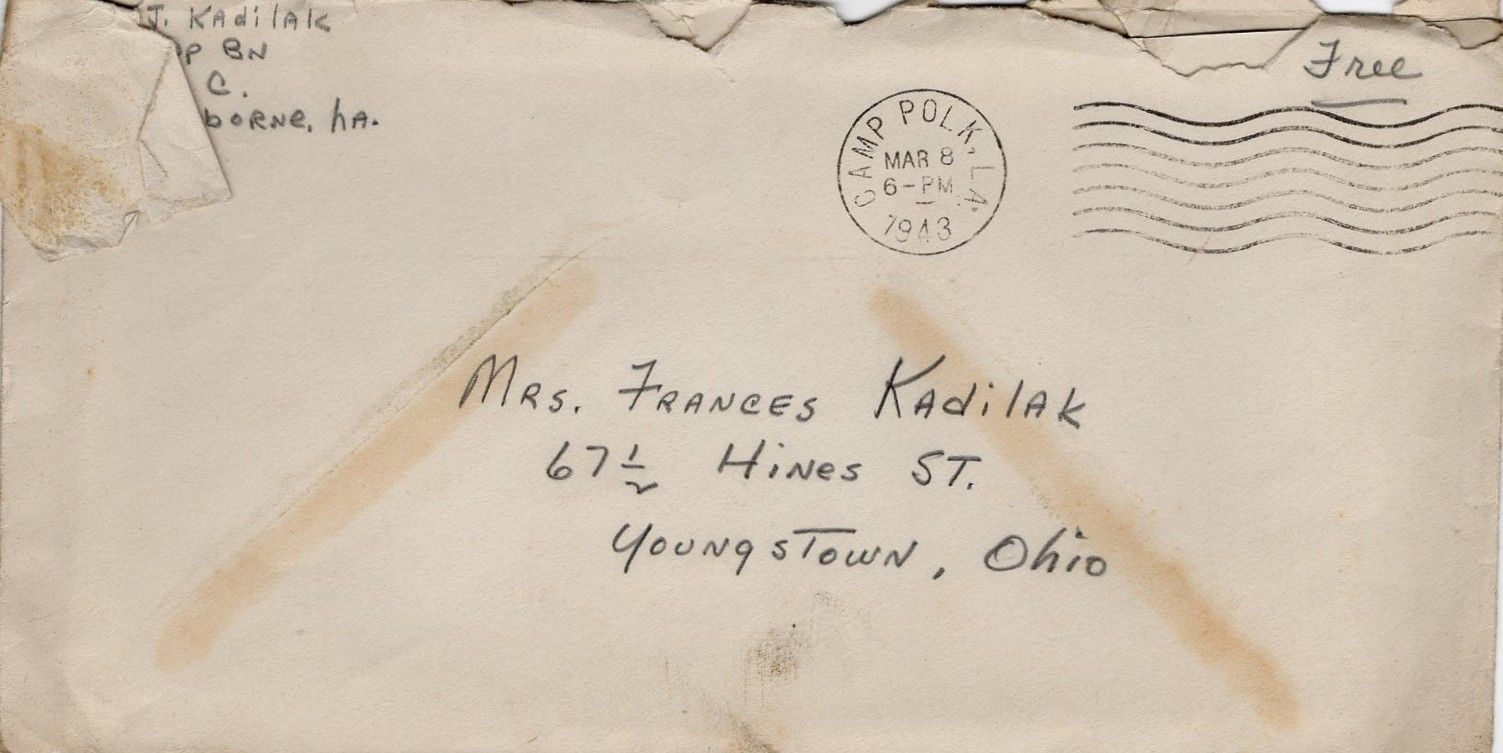 J. Kadilak
P BN
C.
borne, LA.
Free
CAMP POLK, LA.
MAR 8
6-PM
1943
Mrs. Frances Kadilak
67 1/2 Hines St.
Youngstown, Ohio